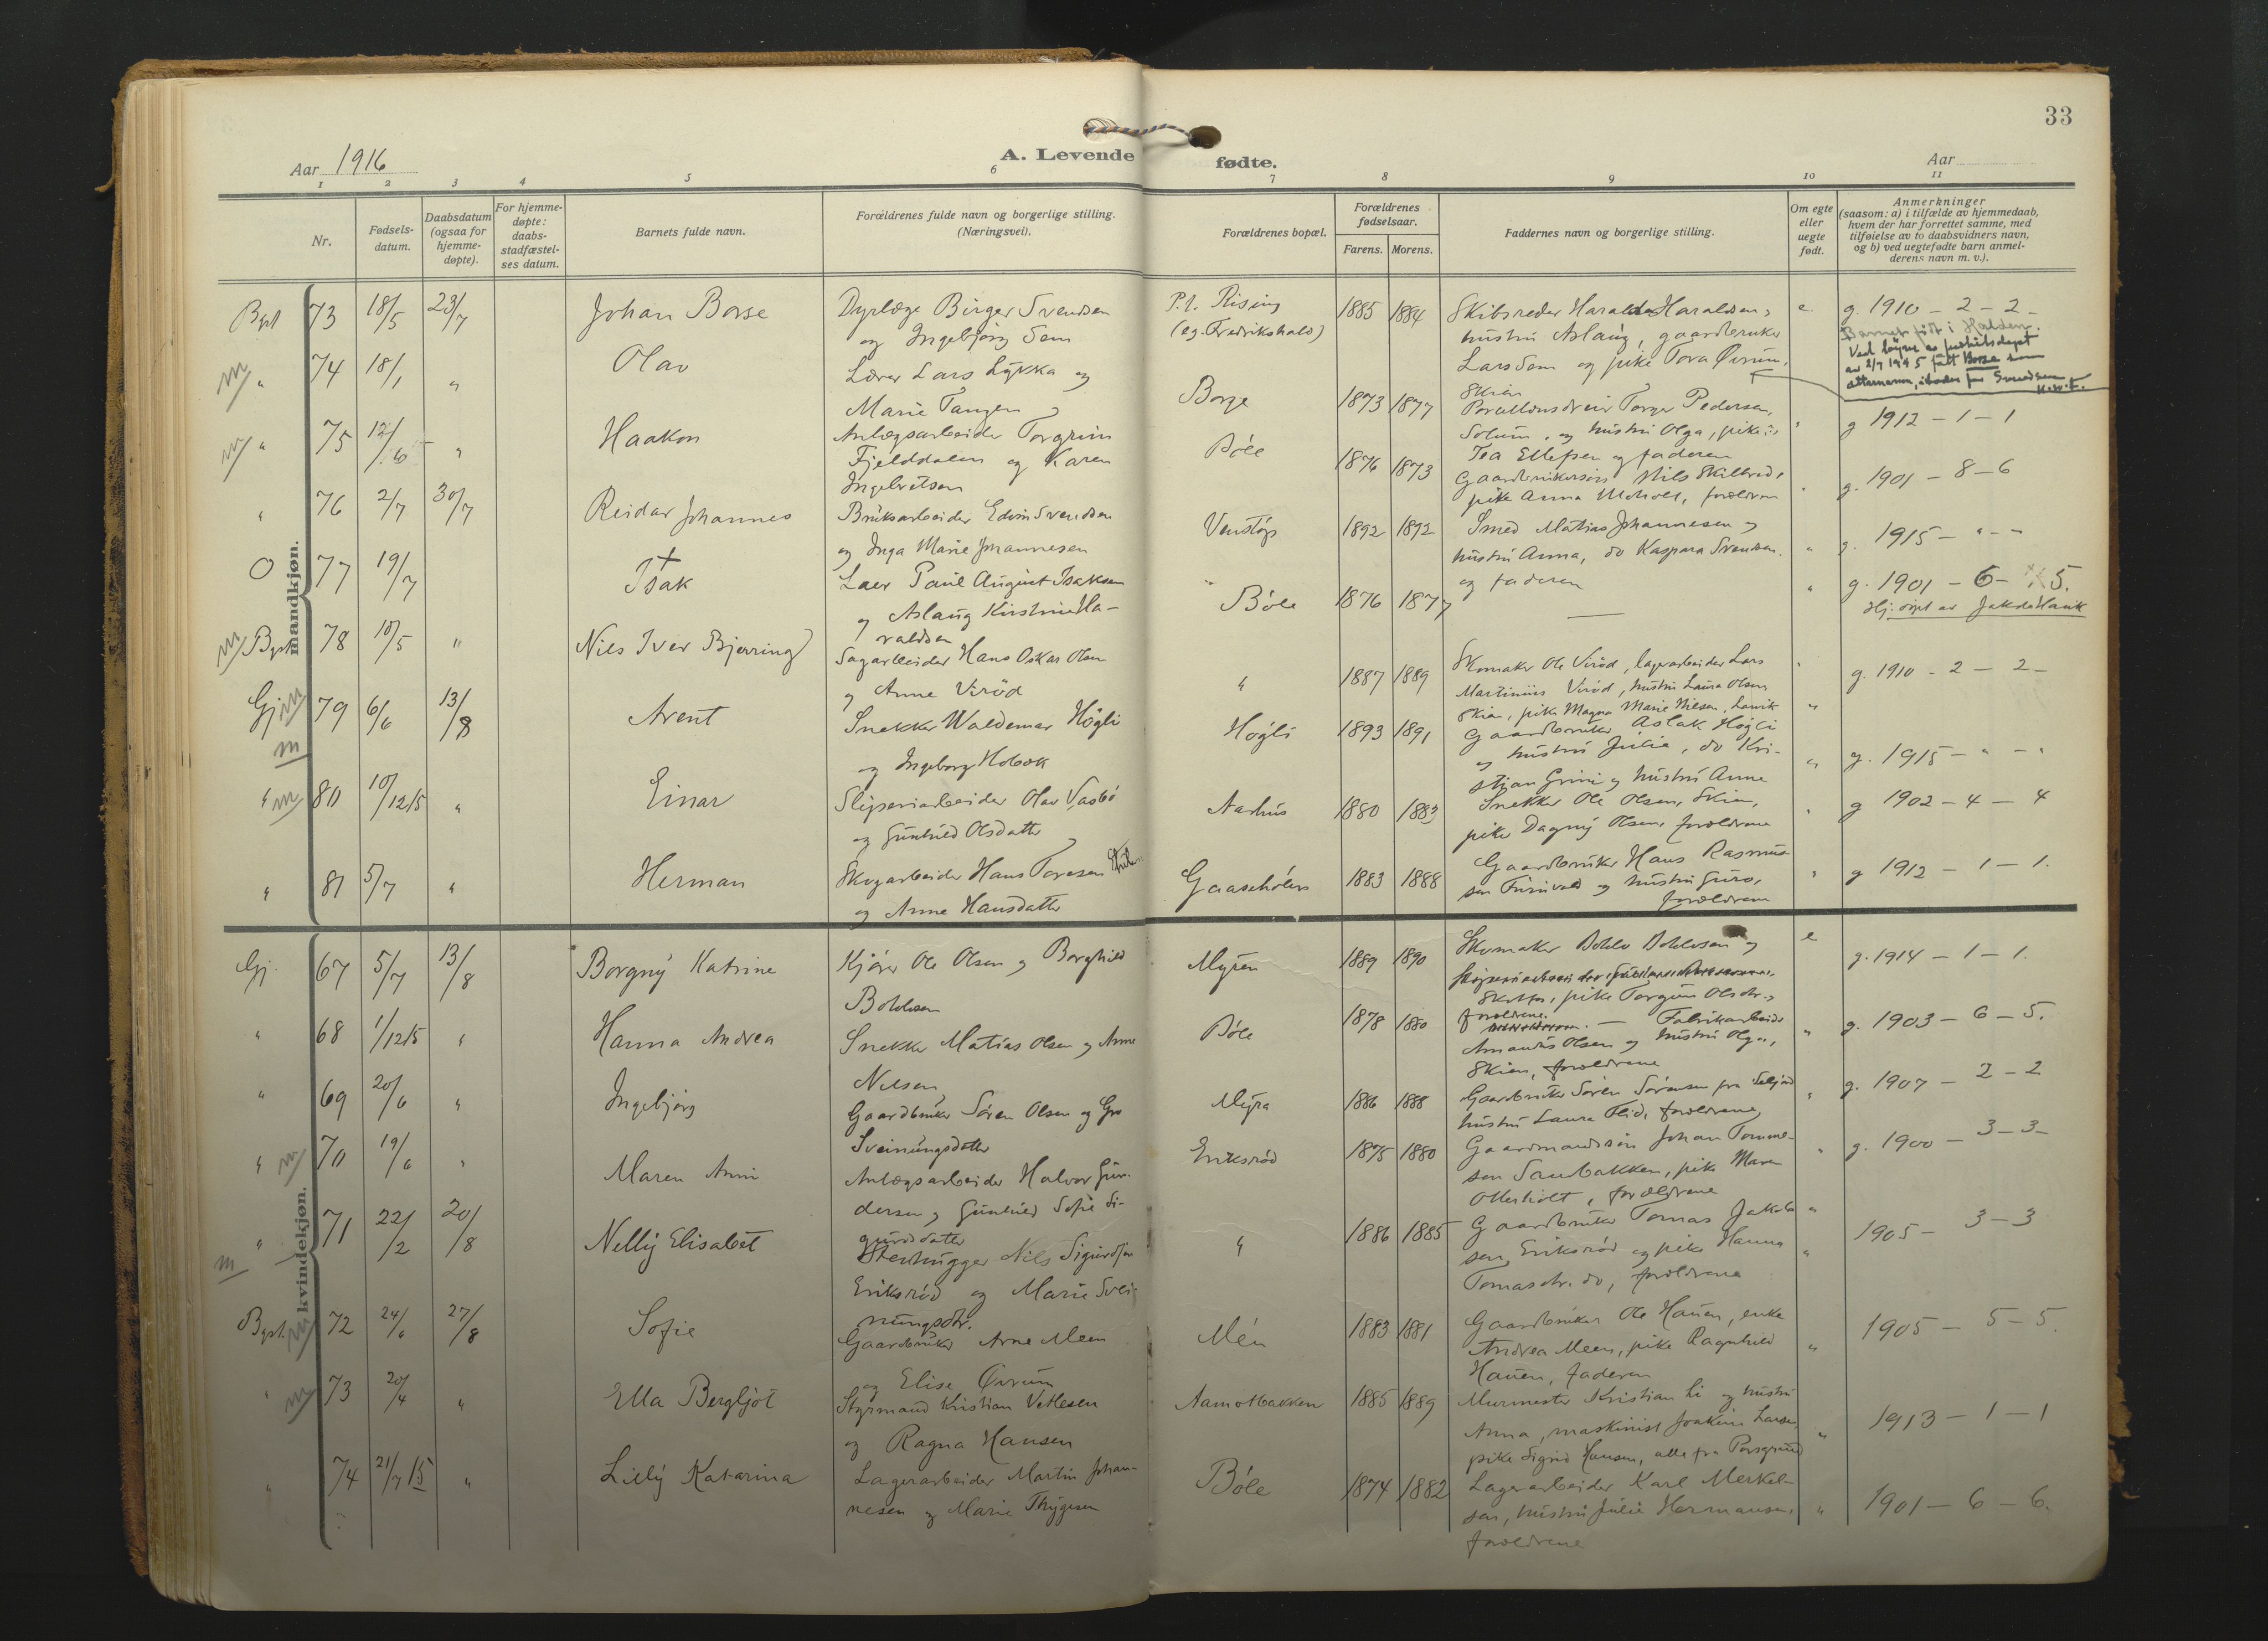 33
Aar 1916
A. Levende fødte.
Aar
1 2 3 4 5 6 7 8 9 10 11
Nr.
Fødsels-
datum.
Daabsdatum
(ogsaa for
hjemme-
døpte).
For hjemme-
døpte:
daabs-
stadfæstel-
ses datum.
Barnets fulde navn.
Forældrenes fulde navn og borgerlige stilling.
(Næringsvei).
Forældrenes bopæl.
Forældrenes
fødselsaar.
Farens. Morens.
Faddernes navn og borgerlige stilling.
Om egte
eller
uegte
født.
Anmerkninger
(saasom: a) i tilfælde av hjemmedaab,
hvem der har forrettet samme, med
tilføielse av to daabsvidners navn,
og b) ved uegtefødte barn anmel-
derens navn m. v.).
mandkjøn.
73 18/5 23/7 Johan Borse
Dyrlæge Birger Svendsen
og Ingebjørg Sem
P.t. Rising
(eg. Fredrikshald)
1885 1884
Skibsreder Harald Haraldsen,
hustru Aslaug, gaardbruker
Lars Sem og pike Tora Øvrum,
Skien
e. g. 1910 - 2 - 2
Barnet født i Halden.
74 18/1 " Olav
Lærer Lars Lykka og
Marie Tangen
Borge
1873 1877
Torger Pedersen,
Solum, og hustru Olga, pike
Tea Ellefsen og faderen
g 1912 - 1 - 1
75 12/6 " Haakon
Anlægsarbeider Torgrim
Fjelddalen og Karen
Ingebretsen
Bøle
1876 1873
Gaardbrukersøn Nils Skilbred,
pike Anna Moholt, forældrene
g. 1901 - 8 - 6
" 76 2/7 30/7 Reidar Johannes
Bruksarbeider Edvin Svendsen
og Inga Marie Johannesen
Venstøp
1892 1892
Smed Matias Johannesen og
hustru Anna, do Kaspara Svendsen
og faderen
" g. 1915 - " - "
O 77 19/7 Isak
Paul August Isaksen
og Aslaug Kirstine Ha-
raldsen
Bøle
1876 1877
" g. 1901 - 6 - 5.
78 10/5 " Nils Iver Bjerring
Sagarbeider Hans Oskar Olsen
og Anne Virød
"
1887 1889
Skomaker Ole Virød, lagerarbeider Lars
Martinius Virød, hustru Laura Olsen
Skien, pike Magna Marie Nilsen, Larvik
g. 1910 - 2 - 2
Gj 79 6/6 13/8 Arent
Snekker Waldemar Høgli
og Ingeborg Holbæk
Høgli
1893 1891
Gaardbruker Aslak Høgli
og hustru Julie, do Kri-
stian Grini og hustru Anne
" g. 1915 - " - "
" 80 10/12 15 " Einar
Sliperiarbeider Olav Vasbø
og Gunhild Olsdatter
Aarhus
1880 1883
Snekker Ole Olsen, Skien,
pike Dagny Olsen, forældrene
g 1902 - 4 - 4
" 81 5/7 " Herman
Skogarbeider Hans Toresen
og Anne Hansdatter
Gaaseholen
1883 1888
Gaardbruker Hans Rasmus-
sen Furuvald og hustru Guro,
forældrene
g 1912 - 1 - 1.
kvindekjøn.
Gj. 67 5/7 13/8 Borgny Katrine
Kjører Ole Olsen og Borghild
Boldvsen
Myren
1889 1890
Skomaker
pike Torgun Olsdtr.,
forældrene.
e g. 1914 - 1 - 1.
" 68 1/12 15 " Hanna Andrea
Snekker Matias Olsen og Anne
Nilsen
Bøle
1878 1880
Fabrikarbeider
Amandus Olsen og hustru Olga,
Skien, forældrene
" g. 1903 - 6 - 5.
" 69 20/6 " Ingebjørg
Gaardbruker Søren Olsen og Gro
Sveinungsdatter
Myra
1886 1888
Gaardbruker Søren Sørensen fra Seljord
hustru Laura Flid, forældrene
g. 1907 - 2 - 2
" 70 19/6 " Maren Anni
Anlægsarbeider Halvor Gun-
dersen og Gunhild Sofie Si-
gurdsdatter
Eriksrød
1875 1880
Gaardmandssøn Johan Tomme-
sen Sandbakken, pike Maren
Otterholt, forældrene
g. 1900 - 3 - 3
" 71 22/2 20/8 Nelly Elisabet
Stenhugger Nils Sigurdsen
Eriksrød og Marie Svei-
nungsdtr.
"
1886 1885
Gaardbruker Tomas Jakob-
sen, Eriksrød og pike Hanna
Tomasdtr. do, forældrene
" 1905 - 3 - 3
72 24/6 27/8 Sofie
Gaardbruker Arne Meen
og Elise Øvrum
Mén
1883 1881
Gaardbruker Ole Hauen, enke
Andrea Meen, pike Ragnhild
Hauen, faderen
" 1905 - 5 - 5.
73 20/4 " Ella Bergljot
Styrmand Kristian Vetlesen
og Ragna Hansen
Aamotbakken
1885 1889
Murmester Kristian Li og hustru
Anna, maskinist Joakim Larsen,
pike Sigrid Hansen, alle fra Porsgrund
" 1913 - 1 - 1
" 74 21/7 15 " Lilly Katarina
Lagerarbeider Martin Johan-
nesen og Marie Thygesen
Bøle
1874 1882
Lagerarbeider Karl Merkel-
sen, hustru Julie Hermansen,
forældrene
" 1901 - 6 - 6.